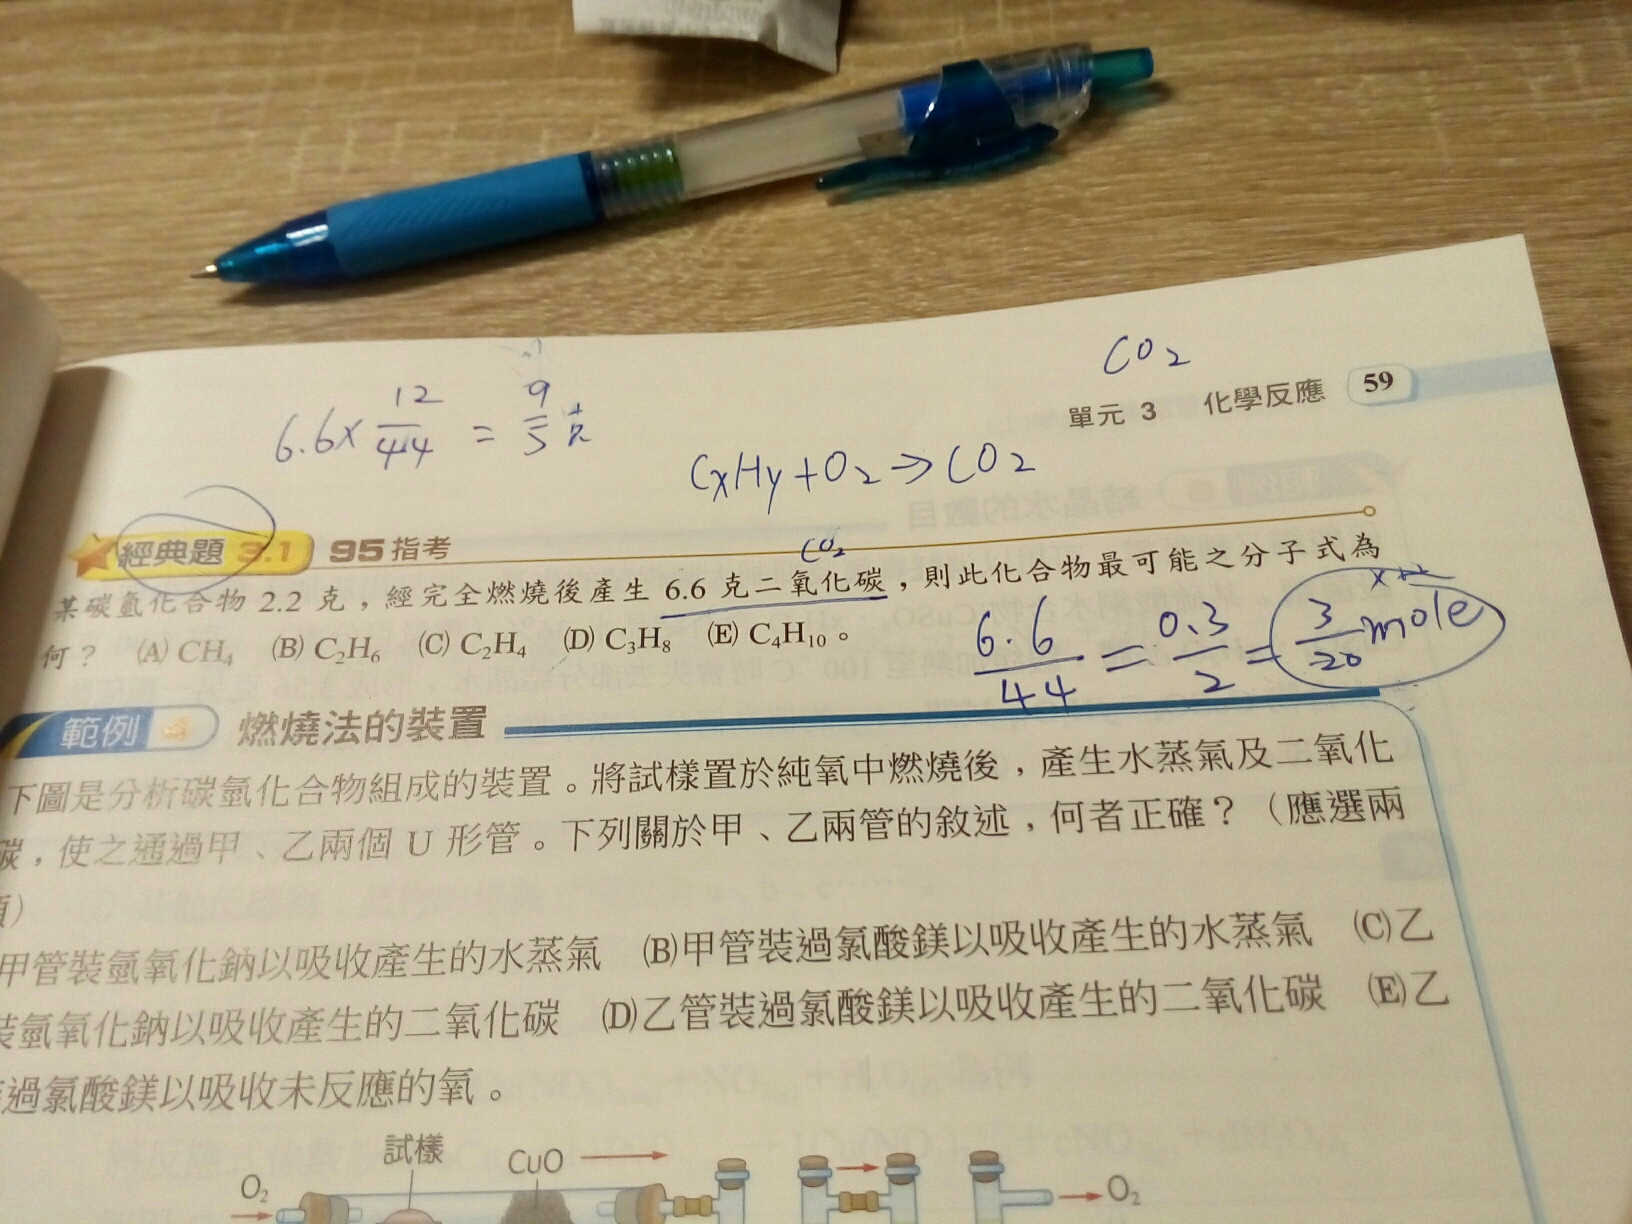 CO₂
單元 3 化學反應 59
6.6× 12/44 = 9/5 克
CxHy+O₂→CO₂
經典題 3.1 95 指考
CO₂
某碳氫化合物 2.2 克，經完全燃燒後產生 6.6 克二氧化碳，則此化合物最可能之分子式為
何？ (A) CH₄ (B) C₂H₆ (C) C₂H₄ (D) C₃H₈ (E) C₄H₁₀。
6.6/44 = 0.3/2 = 3/20 mole
範例 燃燒法的裝置
下圖是分析碳氫化合物組成的裝置。將試樣置於純氧中燃燒後，產生水蒸氣及二氧化
碳，使之通過甲、乙兩個 U 形管。下列關於甲、乙兩管的敘述，何者正確？（應選兩
項）
甲管裝氫氧化鈉以吸收產生的水蒸氣 (B)甲管裝過氯酸鎂以吸收產生的水蒸氣 (C)乙
裝氫氧化鈉以吸收產生的二氧化碳 (D)乙管裝過氯酸鎂以吸收產生的二氧化碳 (E)乙
過氯酸鎂以吸收未反應的氧。
試樣 CuO
O₂ O₂